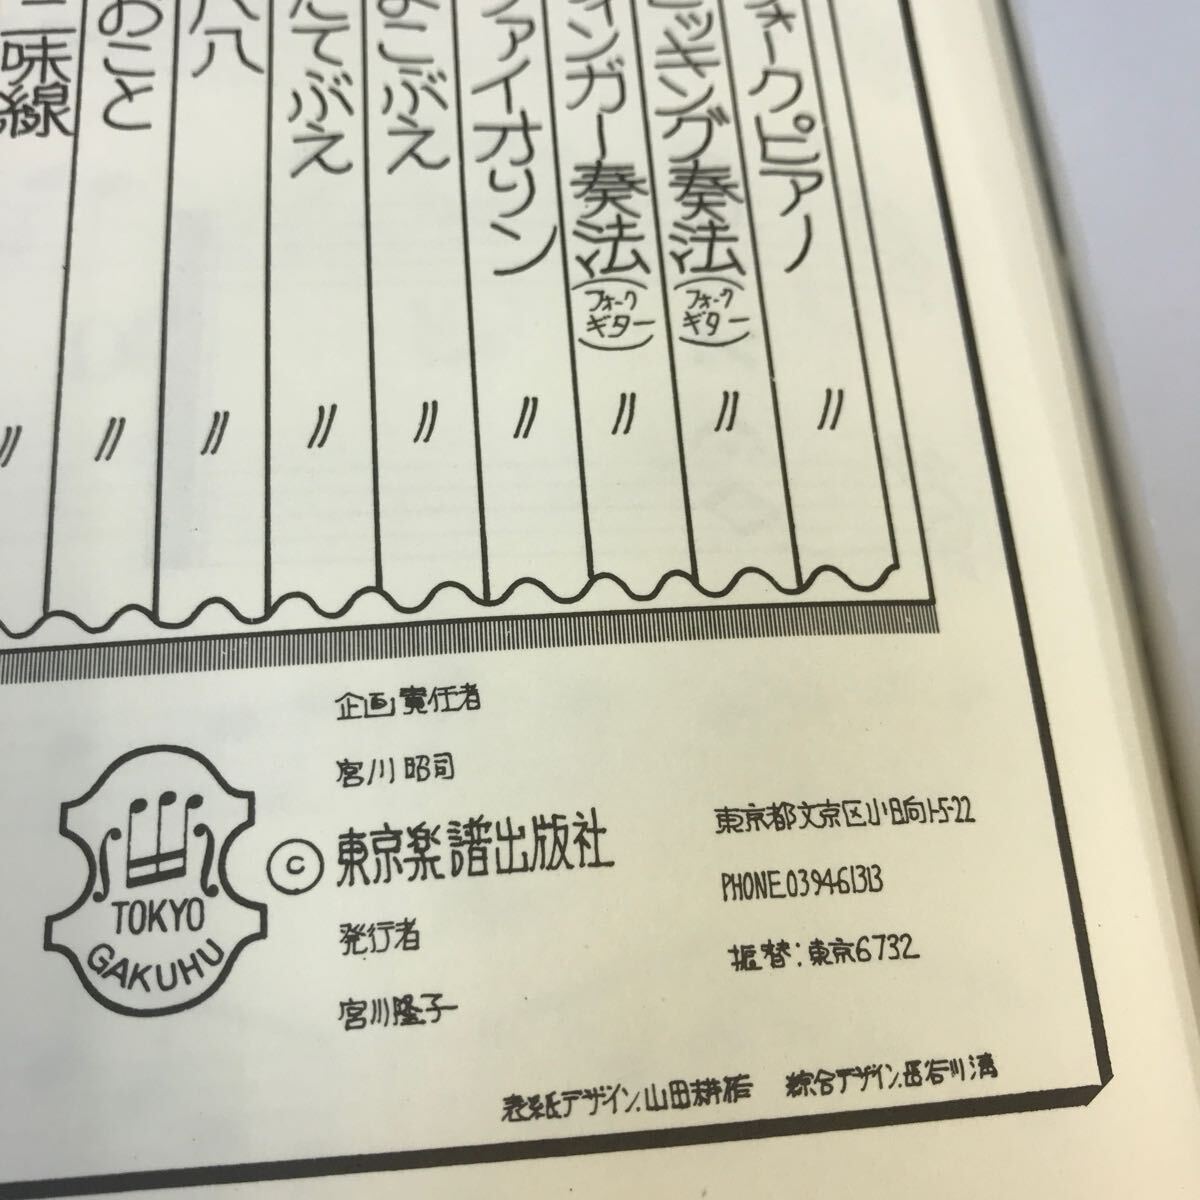 ォークピアノ
〃
ッキング奏法(フォークギター)
〃
ィンガー奏法(フォークギター)
〃
ァイオリン
〃
よこぶえ
〃
たてぶえ
〃
八
〃
おこと
〃
三味線
〃
企画責任者
宮川昭司
©東京楽譜出版社
発行者
宮川隆子
TOKYO
GAKUHU
東京都文京区小日向1-5-22
PHONE.03 946 1313
振替:東京6732
表紙デザイン.山田耕作 総合デザイン.長谷川